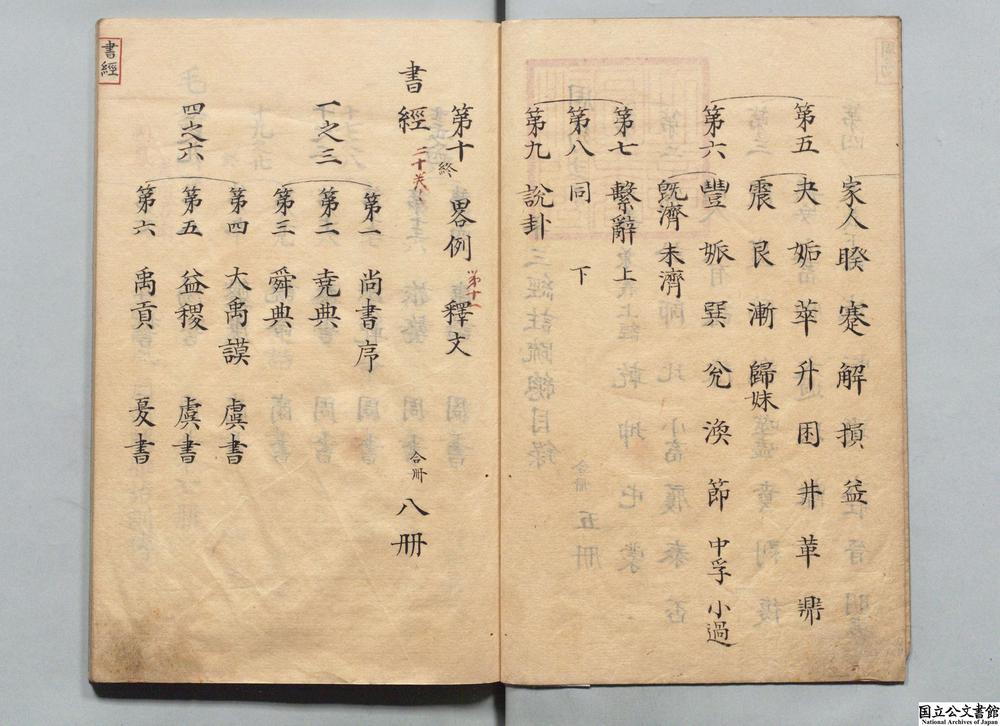 家人 睽 蹇 解 損 益
第五 夬 姤 萃 升 困 井 革 鼎
震 艮 漸 歸妹
第六 豐 旅 巽 兌 渙 節 中孚 小過
既濟 未濟
第七 繫辭上
第八 同 下
第九 說卦
第十終 畧例 第十一 釋文
書經 二十卷 合冊 八冊
一之三 第一 尚書序
第二 堯典
第三 舜典
四之六 第四 大禹謨 虞書
第五 益稷 虞書
第六 禹貢 夏書
書經
国立公文書館
National Archives of Japan